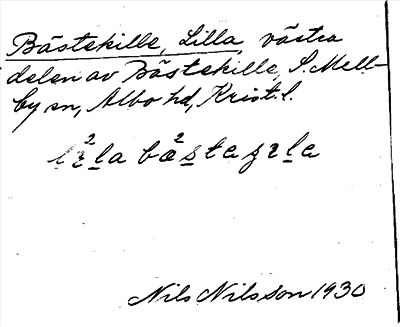 Bästekille, Lilla, västra
delen av Bästekille, S. Mell-
by sn, Albo hd, Krist. l.
Nils Nilsson 1930